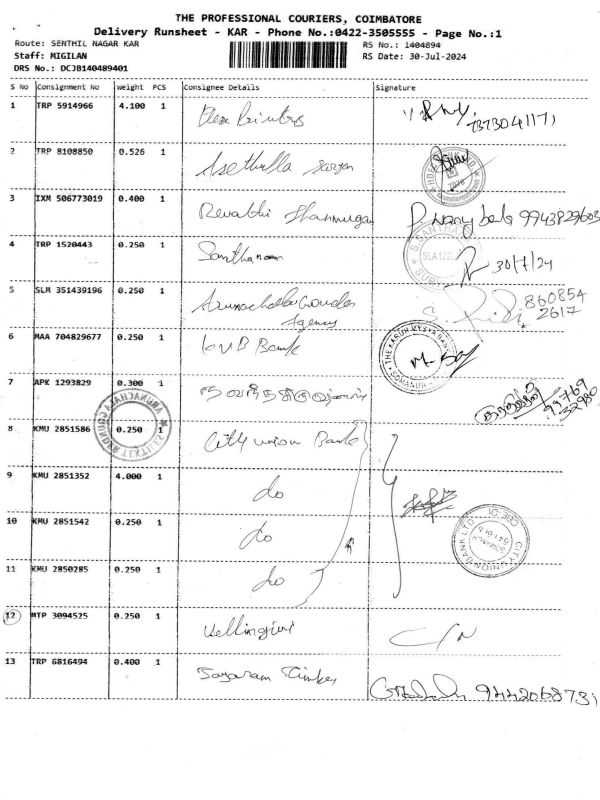 THE PROFESSIONAL COURIERS, COIMBATORE
Delivery Runsheet - KAR - Phone No.:0422-3505555 - Page No.:1
Route: SENTHIL NAGAR KAR
RS No.: 1404894
Staff: MIGILAN
RS Date: 30-Jul-2024
DRS No.: DCJB140489401
S No Consignment No Weight PCS Consignee Details Signature
1 TRP 5914966 4.100 1 7373041171
2 TRP 8108850 0.526 1
3 IXM 506773019 0.400 1 Revathi Shanmugan 9943829603
4 TRP 1520443 0.250 1 Santhanam 30/7/24
5 SLM 351439196 0.250 1 Agency 860854
2617
6 MAA 704829677 0.250 1 KVB Bank THE KARUR VYSYA BANK SOMANUR
7 APK 1293829 0.300 1 99769
32980
8 KMU 2851586 0.250 1 City union Bank
9 KMU 2851352 4.000 1 do
10 KMU 2851542 0.250 1 do
CITY UNION BANK LTD
11 KMU 2850285 0.250 1 do
12 MTP 3094525 0.250 1 Vellingiri C/N
13 TRP 6816494 0.400 1 Jayaram 9442068731